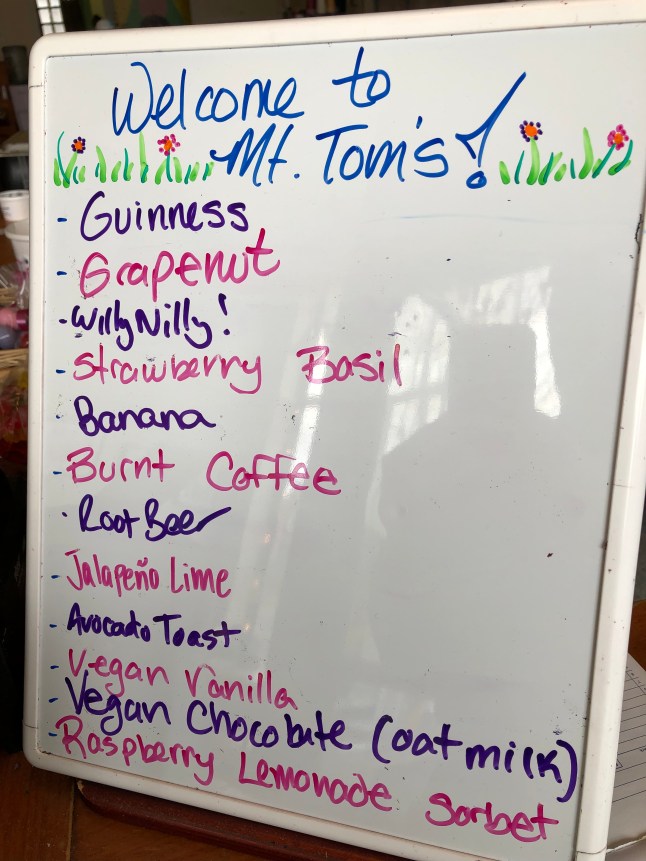 Welcome to
Mt. Tom's!
- Guinness
- Grapenut
- Willy Nilly!
- Strawberry Basil
- Banana
- Burnt Coffee
- Root Beer
- Jalapeño Lime
- Avocado Toast
- Vegan Vanilla
- Vegan Chocolate (oat milk)
- Raspberry Lemonade Sorbet